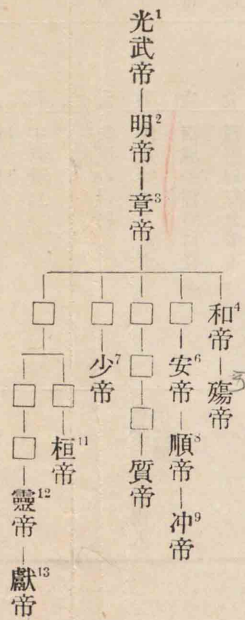 光武帝¹—明帝²—章帝³
和帝⁴—殤帝
□—安帝⁶—順帝⁸—冲帝⁹
□—□—□—質帝
□—少帝⁷
□
□—桓帝¹¹
□—□—靈帝¹²—獻帝¹³